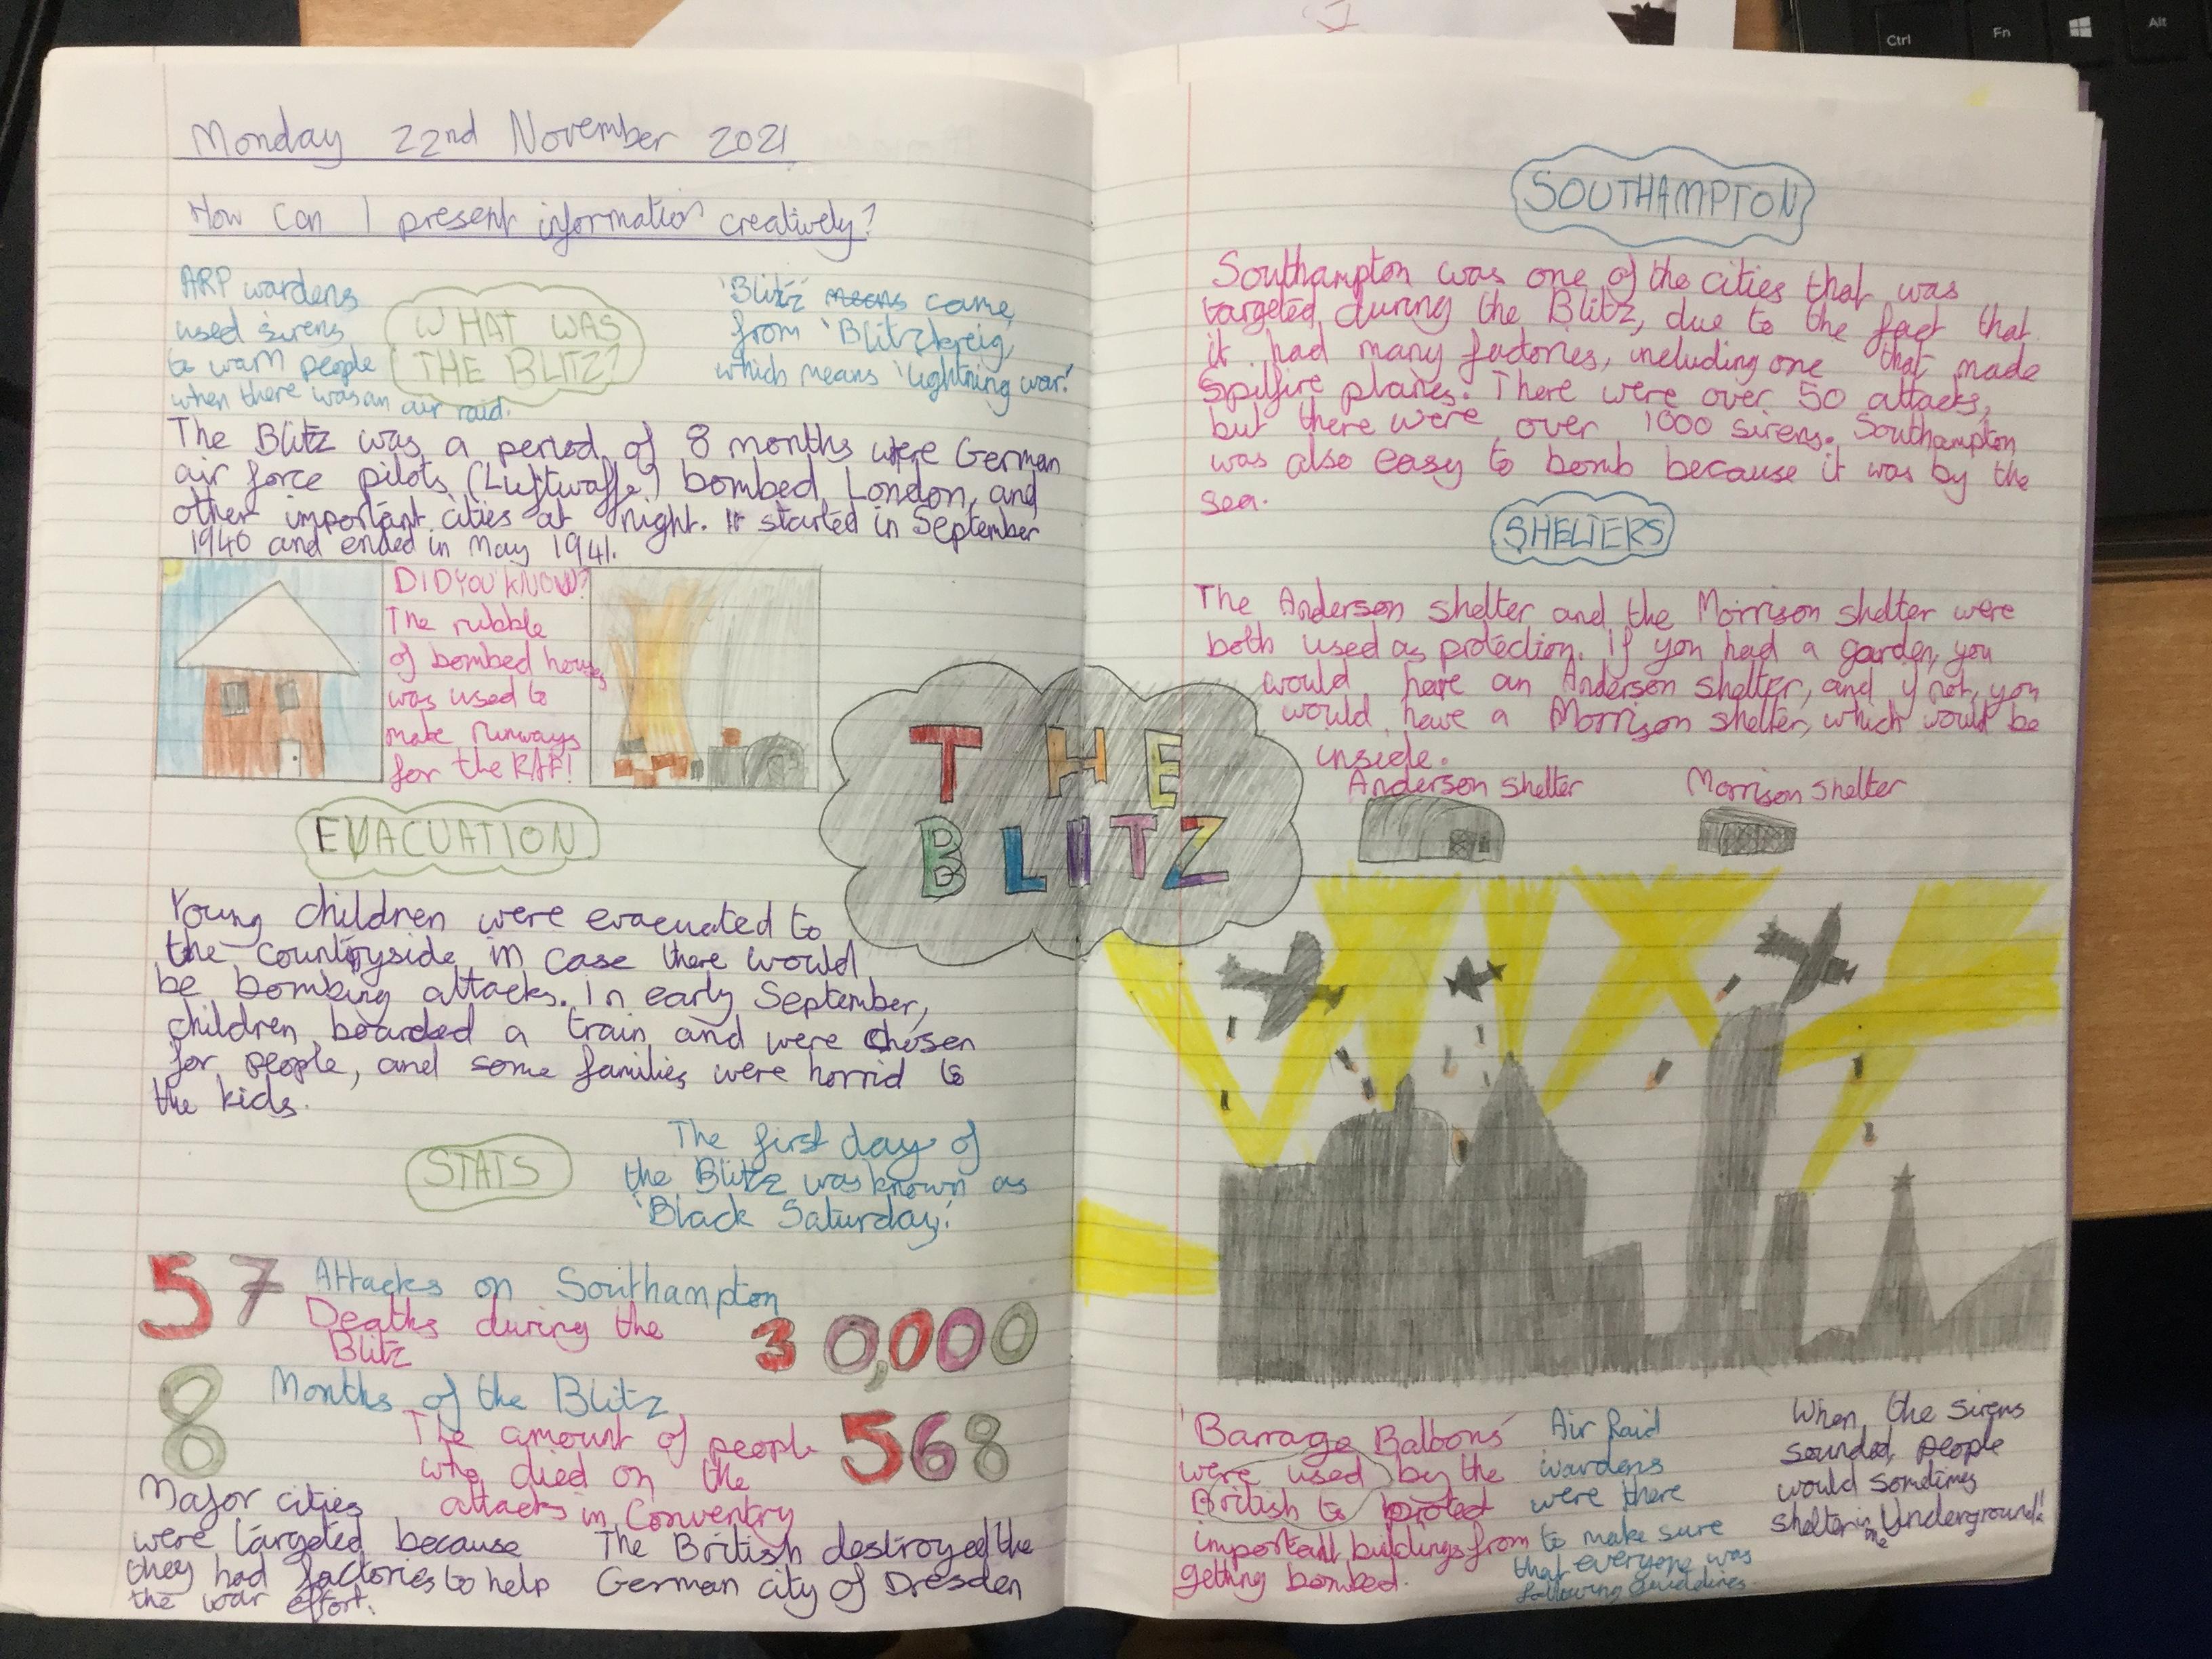 Monday 22nd November 2021
How can I present information creatively?
ARP wardens
used sirens
to warn people
when there was an air raid.
WHAT WAS
THE BLITZ?
'Blitz' means came
from 'Blitzkreig,
which means 'lightning war.'
The Blitz was a period of 8 months were German
air force pilots (Luftwaffe) bombed London, and
other important cities at night. It started in September
1940 and ended in May 1941.
DID YOU KNOW?
The rubble
of bombed houses
was used to
make runways
for the RAF!
EVACUATION
Young children were evacuated to
the countryside in case there would
be bombing attacks. In early September,
children boarded a train and were chosen
for people, and some families were horrid to
the kids.
STATS
The first day of
the Blitz was known as
'Black Saturday.'
57 Attacks on Southampton
Deaths during the
Blitz
30,000
8 Months of the Blitz
The amount of people
who died on the
attacks in Conventry
568
Major cities
were targeted because
they had factories to help
the war effort.
The British destroyed the
German city of Dresden
THE
BLITZ
SOUTHAMPTON
Southampton was one of the cities that was
targeted during the Blitz, due to the fact that
it had many factories, including one that made
Spitfire planes. There were over 50 attacks,
but there were over 1000 sirens. Southampton
was also easy to bomb because it was by the
sea.
SHELTERS
The Anderson shelter and the Morrison shelter were
both used as protection. If you had a garden, you
would have an Anderson shelter, and if not, you
would have a Morrison shelter, which would be
inside.
Anderson shelter
Morrison shelter
'Barrage Balloons'
were used by the
British to protect
important buildings from
getting bombed.
Air Raid
wardens
were there
to make sure
that everyone was
following guidelines.
When the sirens
sounded, people
would sometimes
shelter in the Underground!
Ctrl
Fn
Alt